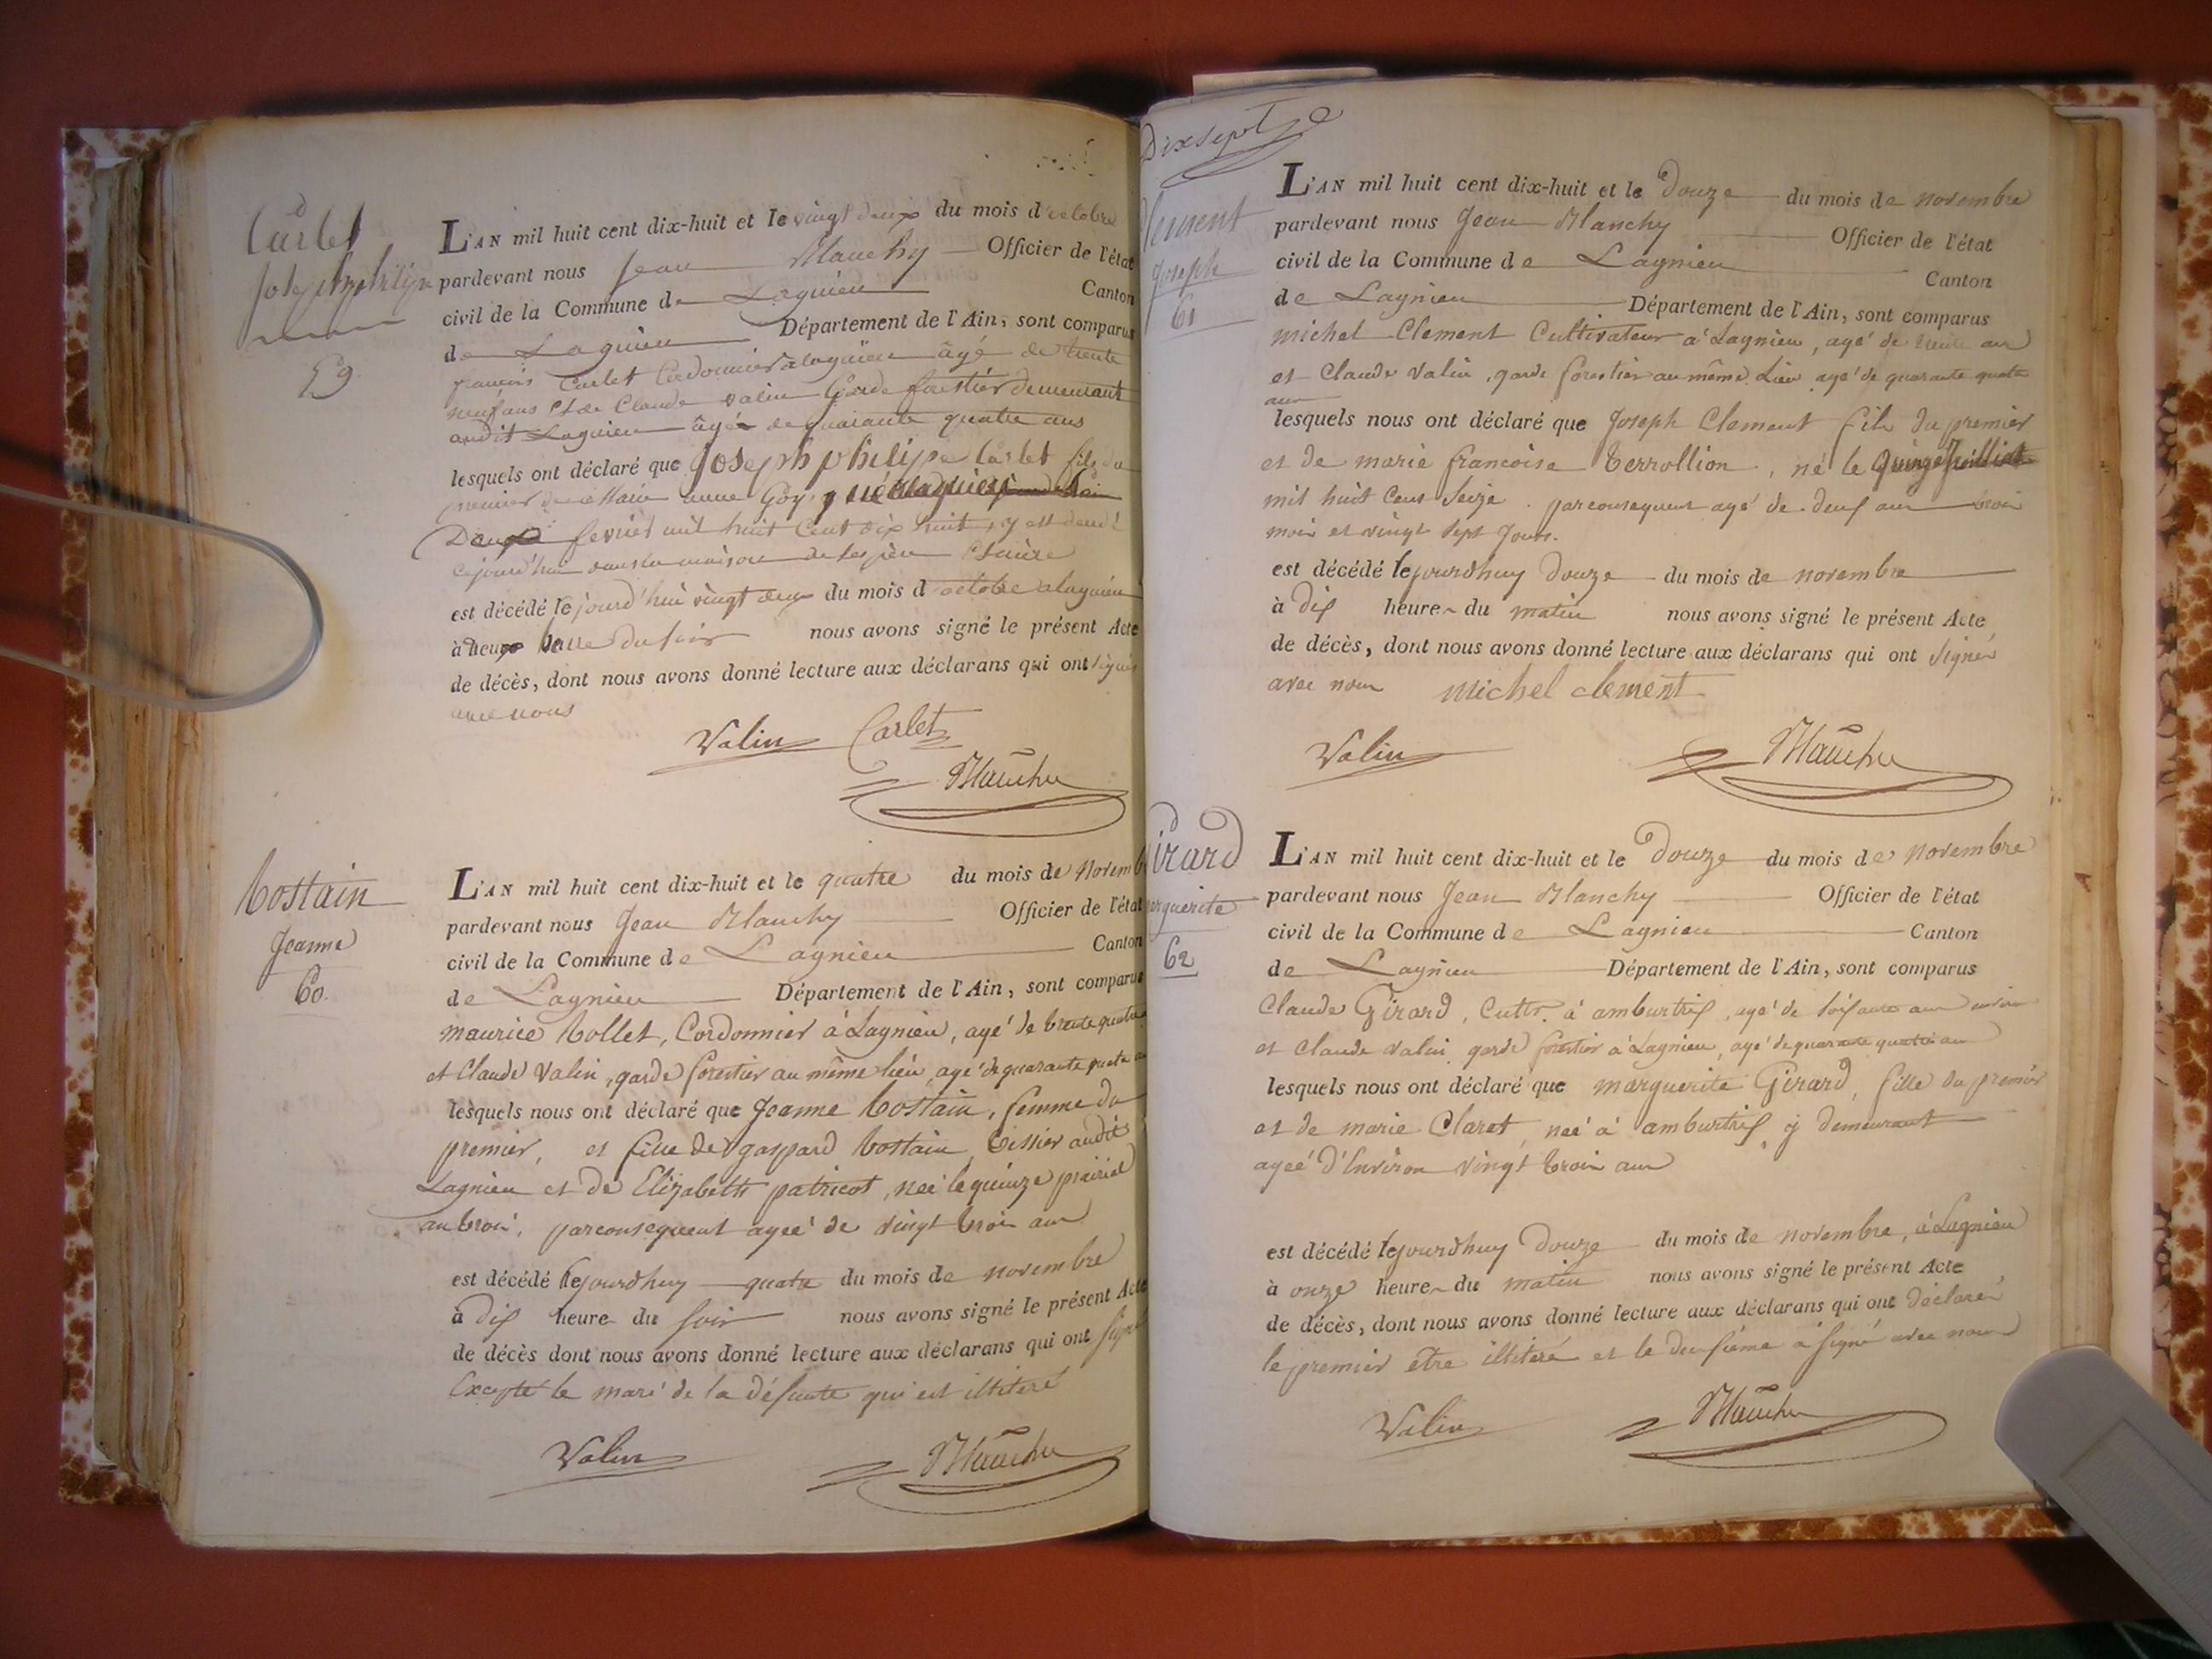 Carlet
Joseph philipe
59
L'AN mil huit cent dix-huit et le vingt deux du mois d'octobre
pardevant nous Jean Blanchy Officier de l'état
civil de la Commune de Lagnieu Canton
de Lagnieu Département de l'Ain, sont comparus
françois Carlet Cordonnier a lagnieu âgé de trente
neuf ans et de Claude valin Garde forestier demeurant
audit Lagnieu âgé de quarante quatre ans
lesquels ont déclaré que Joseph philipe Carlet fils du
premier de Marie anne Goy, né a lagnieu
Douze fevrier mil huit Cent dix huit, y est décédé
cejourd'hui dans la maison de ses père et mère
est décédé le jourd'hui vingt deux du mois d'octobre a lagnieu
à heure du soir nous avons signé le présent Acte
de décès, dont nous avons donné lecture aux déclarans qui ont signés
avec nous
Valin Carlet
Blanchy
Tostain
Jeanne
60.
L'AN mil huit cent dix-huit et le quatre du mois de Novemb
pardevant nous Jean Blanchy Officier de l'état
civil de la Commune de Lagnieu Canton
de Lagnieu Département de l'Ain, sont comparus
maurice Tollet, Cordonnier à Lagnieu, agé de trente quatre
et Claude Valin, garde forestier au même lieu, agé de quarante quatre
lesquels nous ont déclaré que Jeanne Tostain, femme du
premier, et fille de gaspard Tostain, Tissier audit
Lagnieu et de Elizabeth patricot, neé le quinze prairial
an trois, parconsequent ageé de vingt trois ans
est décédé lejourdhuy quatre du mois de novembre
à dix heure du soir nous avons signé le présent Acte
de décès dont nous avons donné lecture aux déclarans qui ont signé
Excepté le mari de la défunte qui est illitéré
Valin Blanchy
Dixsept
Clement
Joseph
61
L'AN mil huit cent dix-huit et le Douze du mois de novembre
pardevant nous Jean Blanchy Officier de l'état
civil de la Commune de Lagnieu Canton
de Lagnieu Département de l'Ain, sont comparus
michel Clement Cultivateur à Lagnieu, agé de trente ans
et Claude Valin, garde forestier au même Lieu agé de quarante quatre
ans
lesquels nous ont déclaré que Joseph Clement fils du premier
et de marie francoise Terrollion, né le quinze Juilliet
mil huit Cent Seize parconsequent agé de deux ans trois
mois et vingt sept Jours.
est décédé lejourdhuy Douze du mois de novembre
à dix heure du matin nous avons signé le présent Acte
de décès, dont nous avons donné lecture aux déclarans qui ont signés
avec nous michel clement
Valin Blanchy
Girard
marguerite
62
L'AN mil huit cent dix-huit et le Douze du mois de novembre
pardevant nous Jean Blanchy Officier de l'état
civil de la Commune de Lagnieu Canton
de Lagnieu Département de l'Ain, sont comparus
Claude Girard, Cultr. à ambutrix, agé de soixante ans environ
et Claude Valin garde forestier à Lagnieu, agé de quarante quatre ans
lesquels nous ont déclaré que marguerite Girard, fille du premier
et de marie Claret, neé à ambutrix, y demeurant
ageé d'Environ vingt trois ans
est décédé lejourdhuy Douze du mois de novembre, à Lagnieu
à onze heure du matin nous avons signé le présent Acte
de décès, dont nous avons donné lecture aux déclarans qui ont déclaré
le premier être illitéré et le deuxième a signé avec nous
Valin Blanchy